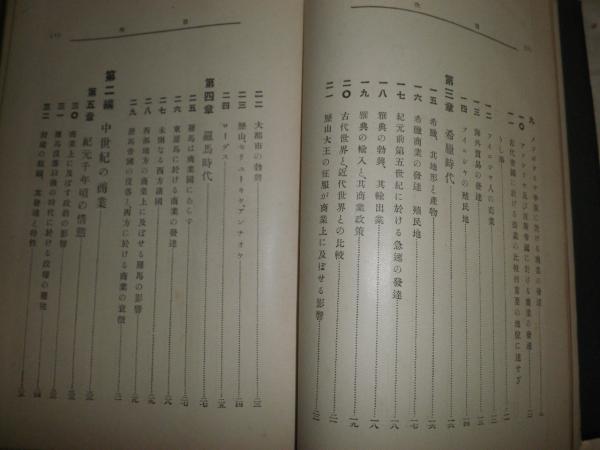 目次
九 メソポタミヤ帝國に於ける商業の發達
一〇 アッシリヤ及び波斯帝國に於ける商業の發達
一一 古代帝國に於ける商業の比較的重要の地位に達せざりし事
一二 フィニシヤ人の商業
一三 海外貿易の發達
一四 フイニシヤの殖民地
第三章 希臘時代
一五 希臘、其地形と產物
一六 希臘商業の發達 殖民地
一七 紀元前第五世紀に於ける急速の發達
一八 雅典の勃興、其輸出業
一九 雅典の輸入と、其商業政策
二〇 古代世界と、近代世界との比較
二一 歷山大王の征服が商業上に及ぼせる影響
目次
二二 大都市の勃興
二三 歷山、セリユーキヤ、アンチオケ
二四 ローヅス
第四章 羅馬時代
二五 羅馬は商業國にあらず
二六 東羅馬に於ける商業の發達
二七 未開なる西方諸國
二八 西部地方の商業上に及ぼせる羅馬の影響
二九 羅馬帝國の沒落と、西方に於ける商業の衰微
第二編 中世紀の商業
第五章 紀元千年頃の情態
三〇 商業上に及ぼす政治の影響
三一 羅馬沒落以後の時代に於ける政權の
三二 封建の組織、其發達と特性